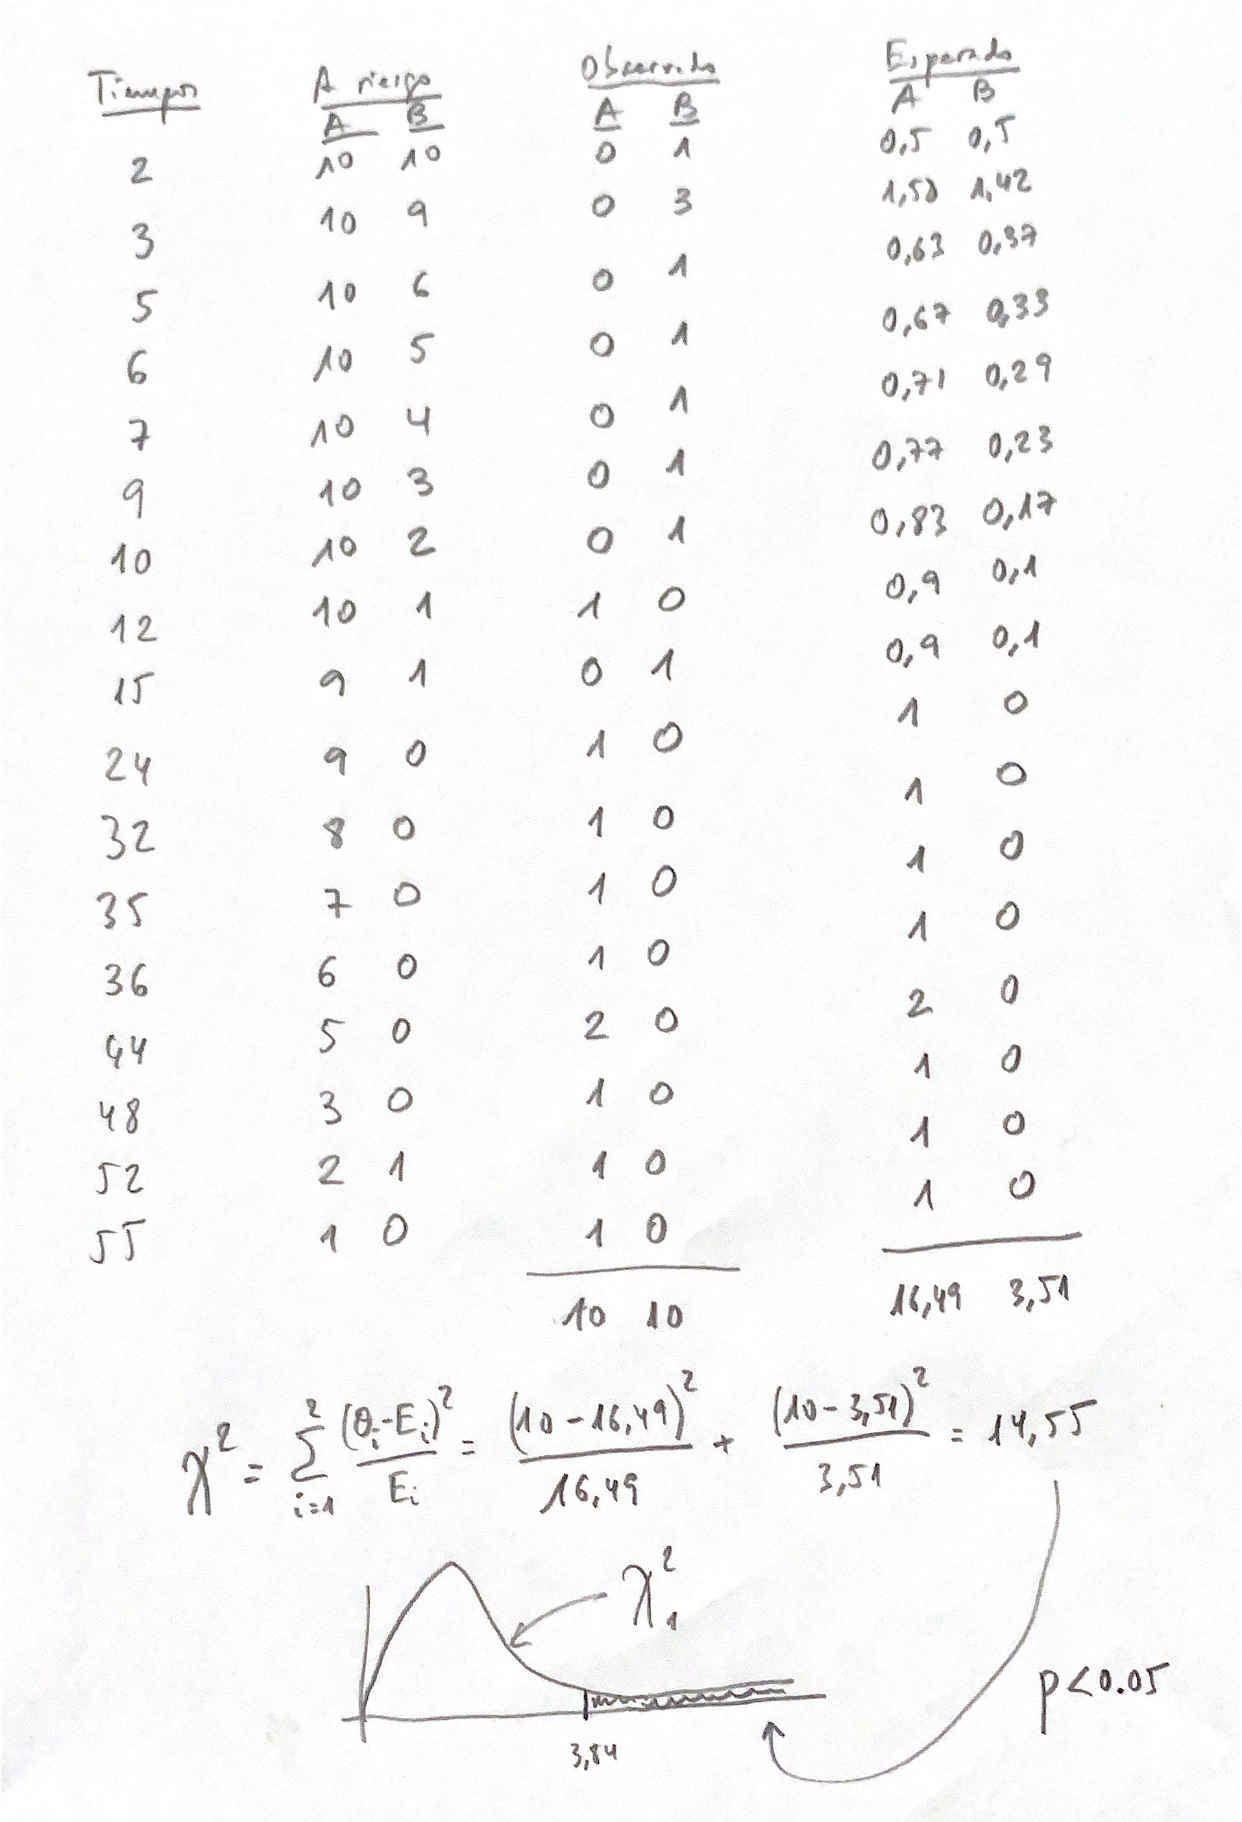 Tiempos A riesgo Observado Esperado
A B A B A B
2 10 10 0 1 0,5 0,5
3 10 9 0 3 1,58 1,42
5 10 6 0 1 0,63 0,37
6 10 5 0 1 0,67 0,33
7 10 4 0 1 0,71 0,29
9 10 3 0 1 0,77 0,23
10 10 2 0 1 0,83 0,17
12 10 1 1 0 0,9 0,1
15 9 1 0 1 0,9 0,1
24 9 0 1 0 1 0
32 8 0 1 0 1 0
35 7 0 1 0 1 0
36 6 0 1 0 1 0
44 5 0 2 0 2 0
48 3 0 1 0 1 0
52 2 1 1 0 1 0
55 1 0 1 0 1 0
10 10 16,49 3,51
χ² = Σ_{i=1}^{2} (O_i-E_i)²/E_i = (10-16,49)²/16,49 + (10-3,51)²/3,51 = 14,55
χ²₁
p<0.05
3,84